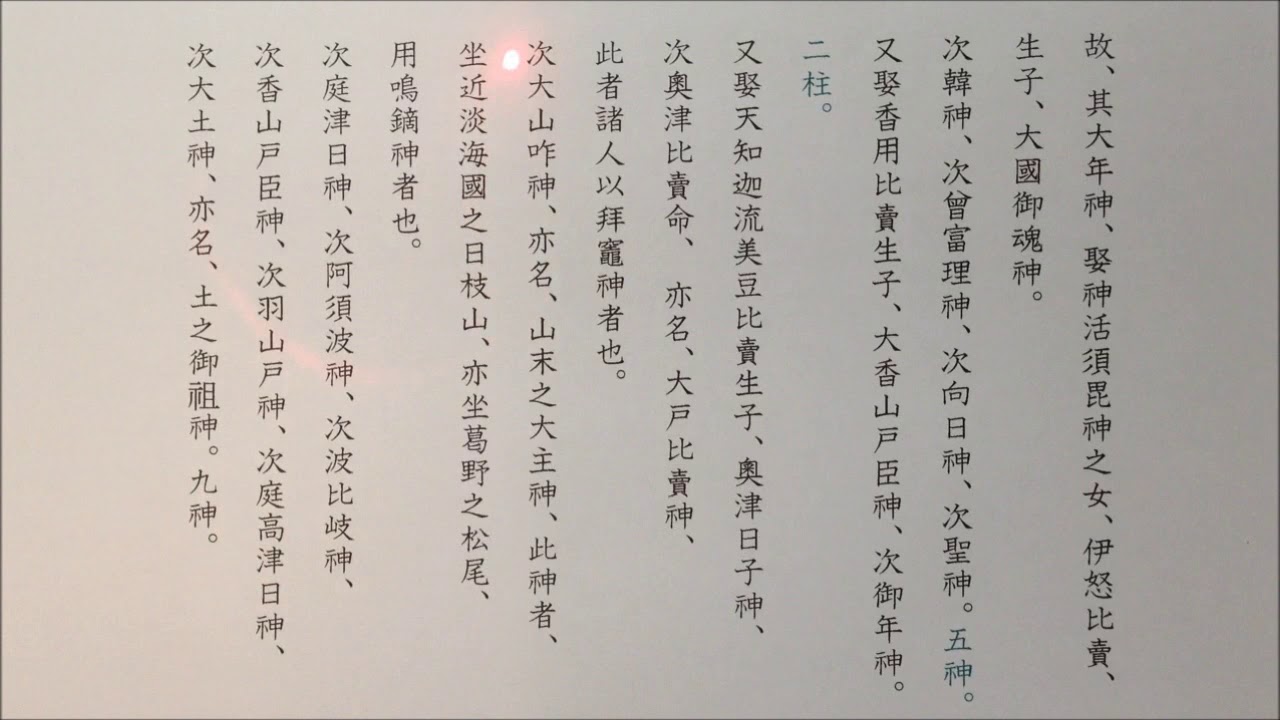 故、其大年神、娶神活須毘神之女、伊怒比賣、
生子、大國御魂神。
次韓神、次曾富理神、次向日神、次聖神。五神。
又娶香用比賣生子、大香山戸臣神、次御年神。
二柱。
又娶天知迦流美豆比賣生子、奧津日子神、
次奧津比賣命、亦名、大戸比賣神、
此者諸人以拜竈神者也。
次大山咋神、亦名、山末之大主神、此神者、
坐近淡海國之日枝山、亦坐葛野之松尾、
用鳴鏑神者也。
次庭津日神、次阿須波神、次波比岐神、
次香山戸臣神、次羽山戸神、次庭高津日神、
次大土神、亦名、土之御祖神。九神。